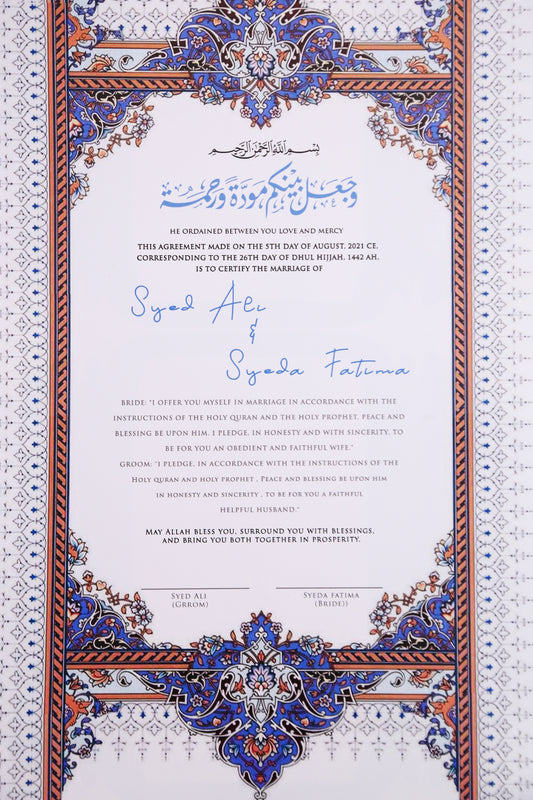 بسم الله الرحمن الرحيم
وجعل بينكم مودة ورحمة
HE ORDAINED BETWEEN YOU LOVE AND MERCY
THIS AGREEMENT MADE ON THE 5TH DAY OF AUGUST, 2021 CE,
CORRESPONDING TO THE 26TH DAY OF DHUL HIJJAH, 1442 AH,
IS TO CERTIFY THE MARRIAGE OF
Syed Ali
&
Syeda Fatima
BRIDE: "I OFFER YOU MYSELF IN MARRIAGE IN ACCORDANCE WITH THE
INSTRUCTIONS OF THE HOLY QURAN AND THE HOLY PROPHET, PEACE AND
BLESSING BE UPON HIM. I PLEDGE, IN HONESTY AND WITH SINCERITY, TO
BE FOR YOU AN OBEDIENT AND FAITHFUL WIFE."
GROOM: "I PLEDGE, IN ACCORDANCE WITH THE INSTRUCTIONS OF THE
HOLY QURAN AND HOLY PROPHET , PEACE AND BLESSING BE UPON HIM
IN HONESTY AND SINCERITY , TO BE FOR YOU A FAITHFUL
HELPFUL HUSBAND."
MAY ALLAH BLESS YOU, SURROUND YOU WITH BLESSINGS,
AND BRING YOU BOTH TOGETHER IN PROSPERITY.
SYED ALI
(GRROM)
SYEDA FATIMA
(BRIDE))